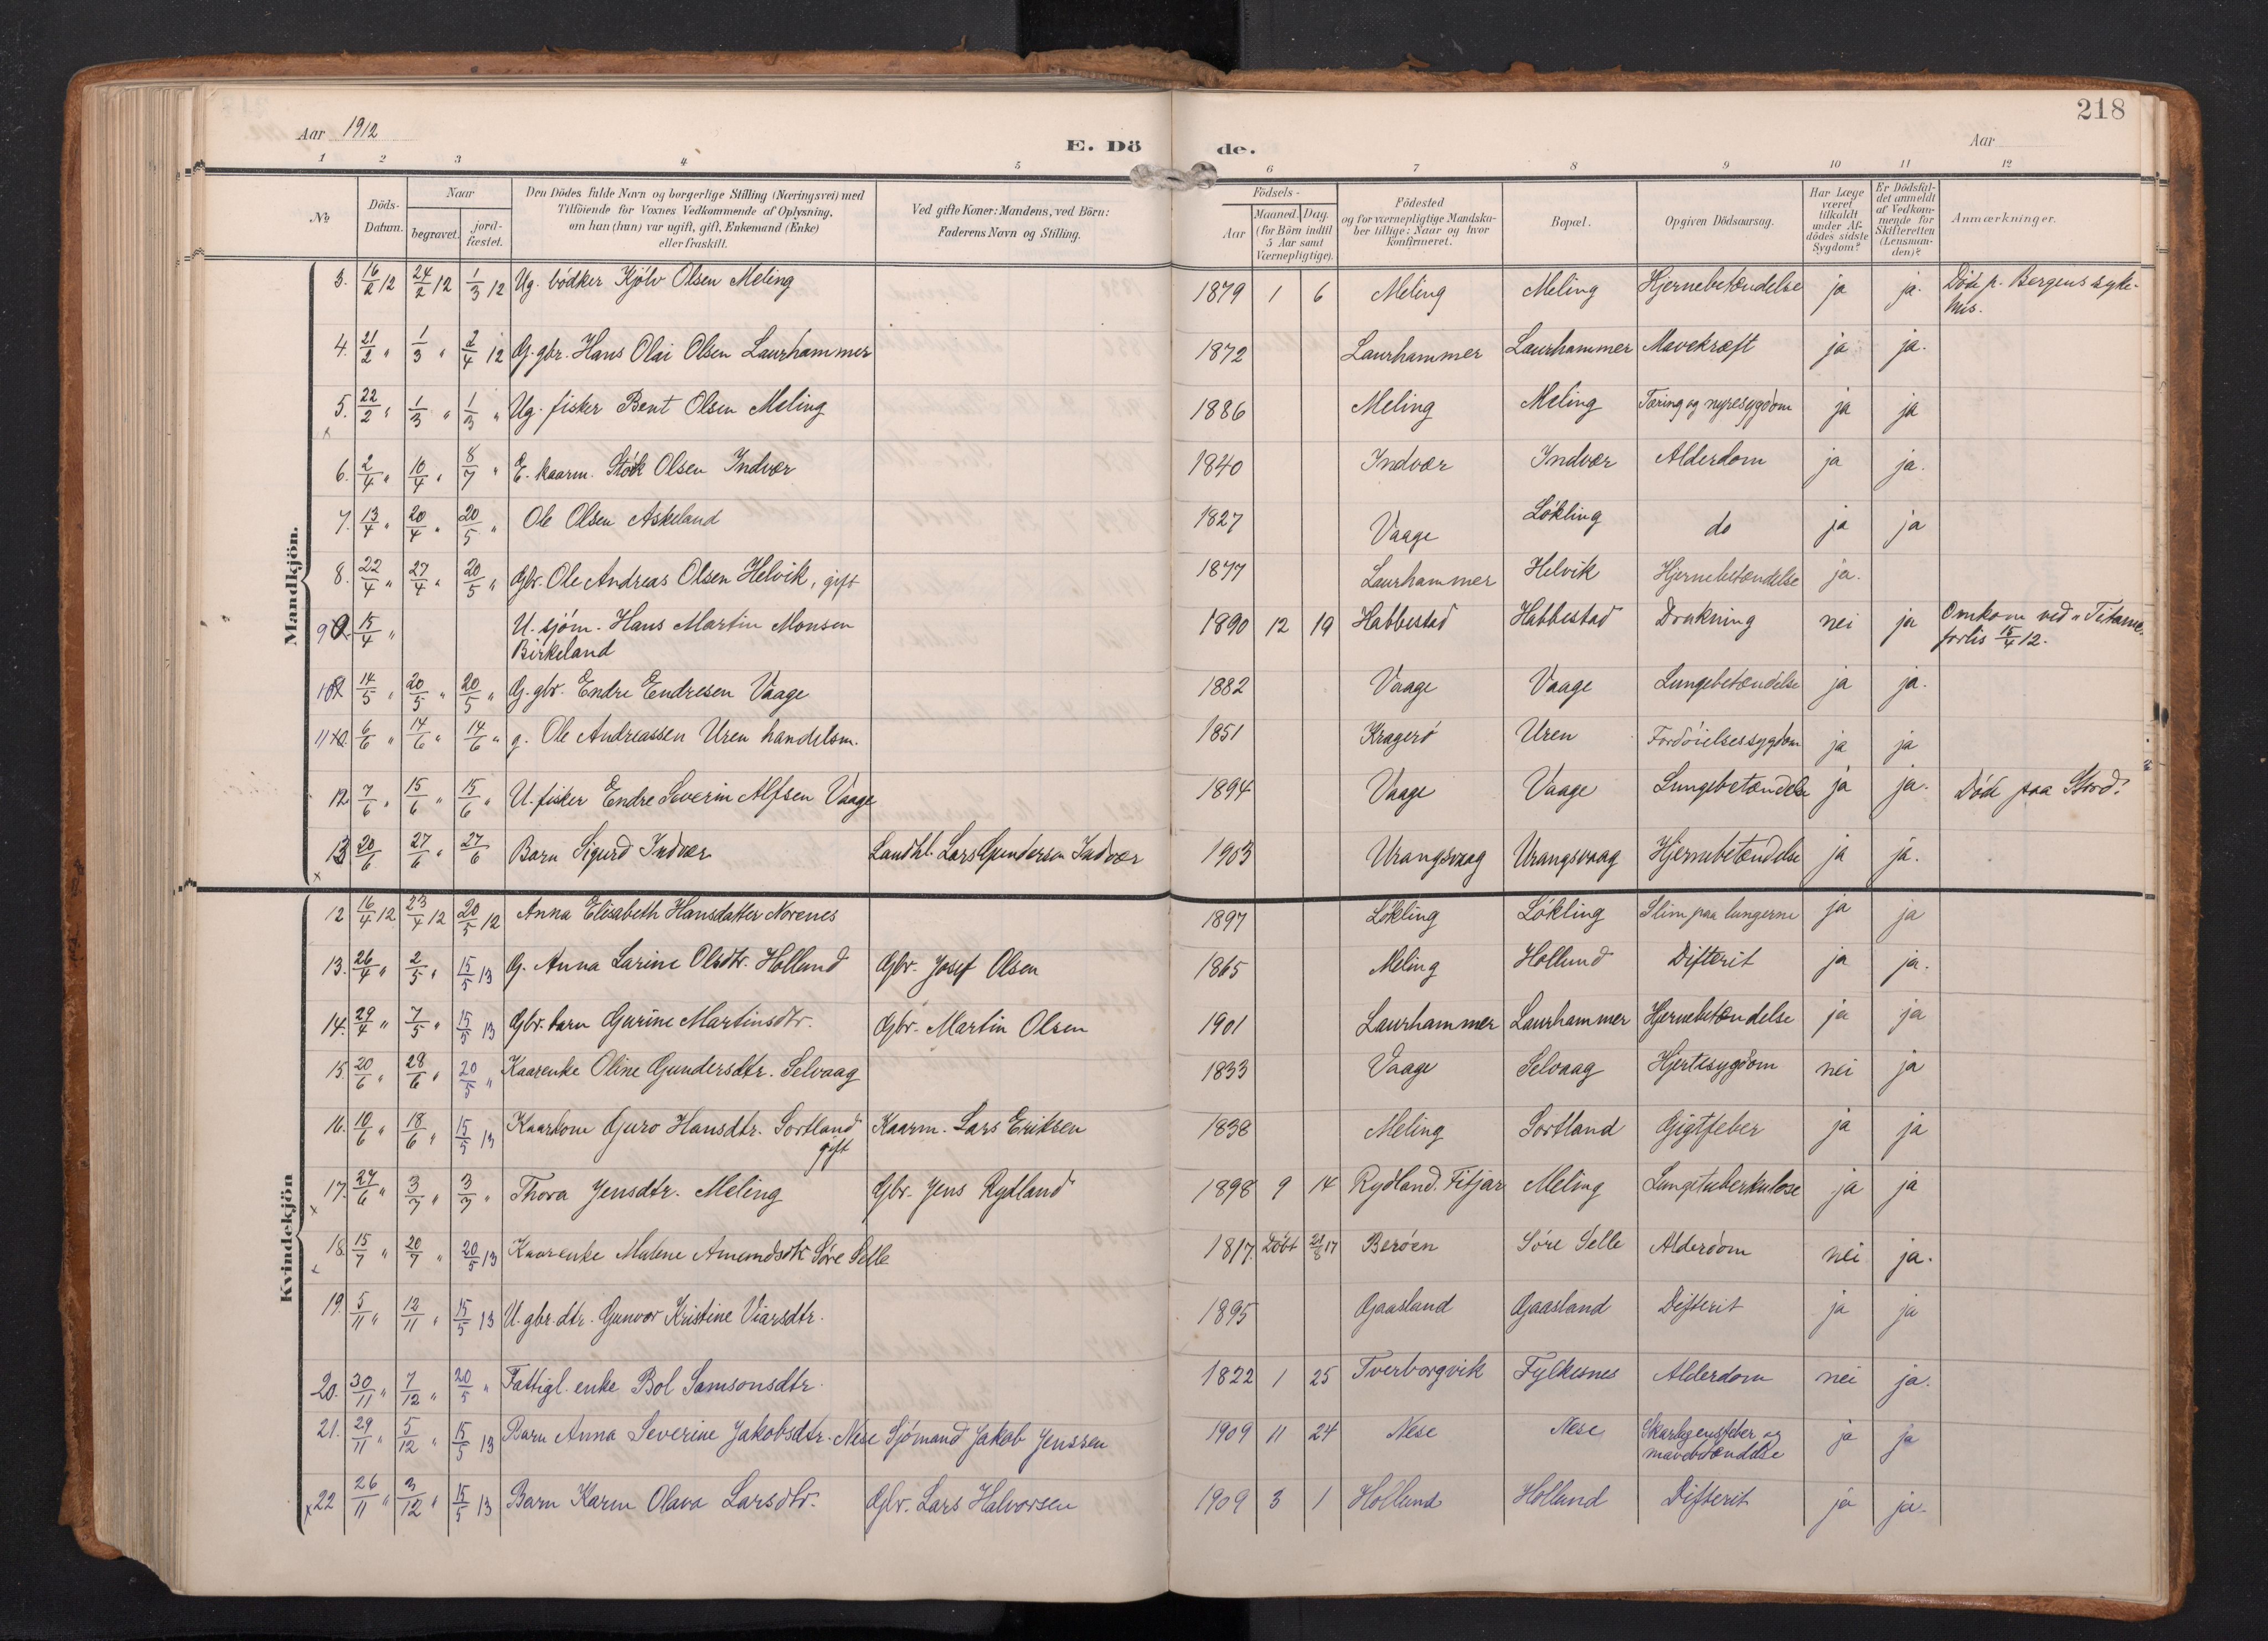 218
Aar 1912
E. Dö de.
Aar
1 2 3 4 5 6 7 8 9 10 11 12
No
Döds-Datum.
Naar
begravet.
jord-fæstet.
Den Dödes fulde Navn og borgerlige Stilling (Næringsvei) med
Tilföiende for Voxnes Vedkommende af Oplysning,
om han (hun) var ugift, gift, Enkemand (Enke)
eller fraskilt.
Ved gifte Koner: Mandens, ved Börn:
Faderens Navn og Stilling.
Födsels-
Aar
Maaned. Dag.
(for Börn indtil
5 Aar samt
Værnepligtige).
Födested
og for værnepligtige Mandska-
ber tillige: Naar og hvor
konfirmeret.
Bopæl.
Opgiven Dödsaarsag.
Har Læge
været
tilkaldt
under Af-
dödes sidste
Sygdom?
Er Dödsfal-
det anmeldt
af Vedkom-
mende for
Skifteretten
(Lensman-
den)?
Anmærkninger.
Mandkjön.
3. 16/2 12 24/2 12 1/3 12 Ug. bödker Kjölv Olsen Meling 1879 1 6 Meling Meling Hjernebetændelse ja ja. Döde p. Bergens syke-
hus.
4. 21/2 " 1/3 " 2/4 12 G. gbr. Hans Olai Olsen Laurhammer 1872 Laurhammer Laurhammer Mavekræft ja ja.
5. 22/2 " 1/3 " 1/3 " Ug. fisker Bent Olsen Meling 1886 Meling Meling Tæring og nyresygdom ja ja
x
6. 2/4 " 10/4 " 8/7 " E. kaarm. Störk Olsen Indvær 1840 Indvær Indvær Alderdom ja ja.
7. 13/4 " 20/4 " 20/5 " Ole Olsen Askeland 1827 Vaage Lökling do ja ja
8. 22/4 " 27/4 " 20/5 " Gbr. Ole Andreas Olsen Helvik, gift 1877 Laurhammer Helvik Hjernebetændelse ja.
9 15/4 " U. sjöm. Hans Martin Monsen 1890 12 19 Habbestad Habbestad Drukning nei ja Omkom ved "Titanic
Birkeland forlis 15/4 12.
10 14/5 " 20/5 " 20/5 " G. gbr. Endre Endresen Vaage 1882 Vaage Vaage Lungebetændelse ja ja.
11 6/6 " 14/6 " 14/6 " g. Ole Andreassen Uren handelsm. 1851 Kragerö Uren Fordöielsessygdom ja ja
12 7/6 " 15/6 " 15/6 " U. fisker Endre Severin Alfsen Vaage 1894 Vaage Vaage Lungebetændelse ja ja. Döde paa Stord.
13 20/6 27/6 " 27/6 Barn Sigurd Indvær Landhl. Lars Gundersen Indvær 1903 Urangsvaag Urangsvaag Hjernebetændelse ja ja.
x
Kvindekjön
12 16/4 12 23/4 12 20/5 12 Anna Elisabeth Hansdatter Norenes 1897 Lökling Lökling Slim paa lungerne ja ja
13. 26/4 " 2/5 " 15/5 13 G. Anna Larine Olsdtr. Hollund Gbr. Josef Olsen 1865 Meling Hollund Difterit ja ja.
14. 29/4 " 7/5 " 15/5 13 Gbr. barn Gurine Martinsdtr. Gbr. Martin Olsen 1901 Laurhammer Laurhammer Hjernebetændelse ja ja
15. 20/6 " 28/6 " 20/5 " Kaarenke Oline Gundersdtr. Selvaag 1833 Vaage Selvaag Hjertesygdom nei ja
16. 10/6 " 18/6 " 15/5 13 Kaarkone Guro Hansdtr. Sortland Kaarm. Lars Eriksen 1838 Meling Sortland Gigtfeber ja ja
gift
17. 27/6 " 3/7 " 3/7 " Thora Jensdtr. Meling Gbr. Jens Rydland 1898 9 14 Rydland. Fitjar Meling Lungetuberkulose ja ja
x
18. 15/7 " 20/7 " 20/5 13 Kaarenke Malene Amundsdtr. Söre Selle 1817 Döbt 21/8 17 Beröen Söre Selle Alderdom nei ja.
x
19. 5/11 " 12/11 " 15/5 13 U. gbr. dtr. Gunvor Kristine Viarsdtr. 1895 Gaasland Gaasland Difterit ja ja
20. 30/11 " 7/12 " 20/5 " Fattigl. enke Bol Samsonsdtr. 1822 1 25 Tverborgvik Fylkesnes Alderdom nei ja.
21. 29/11 " 5/12 " 15/5 13 Barn Anna Severine Jakobsdtr. Nese Sjömand Jakob Jenssen 1909 11 24 Nese Nese Skarlagensfeber og ja ja
mavebetændelse
x 22 26/11 " 3/12 " 15/5 13 Barn Karin Olava Larsdtr. Gbr. Lars Halvorsen 1909 3 1 Hollund Hollund Difterit ja ja.